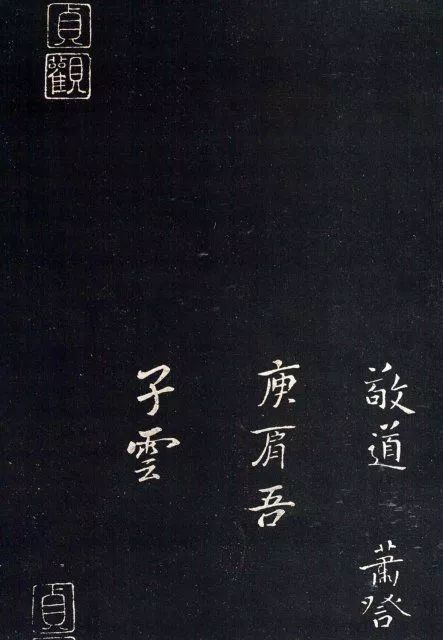 敬道 蕭
庾肩吾
子雲
貞觀
貞